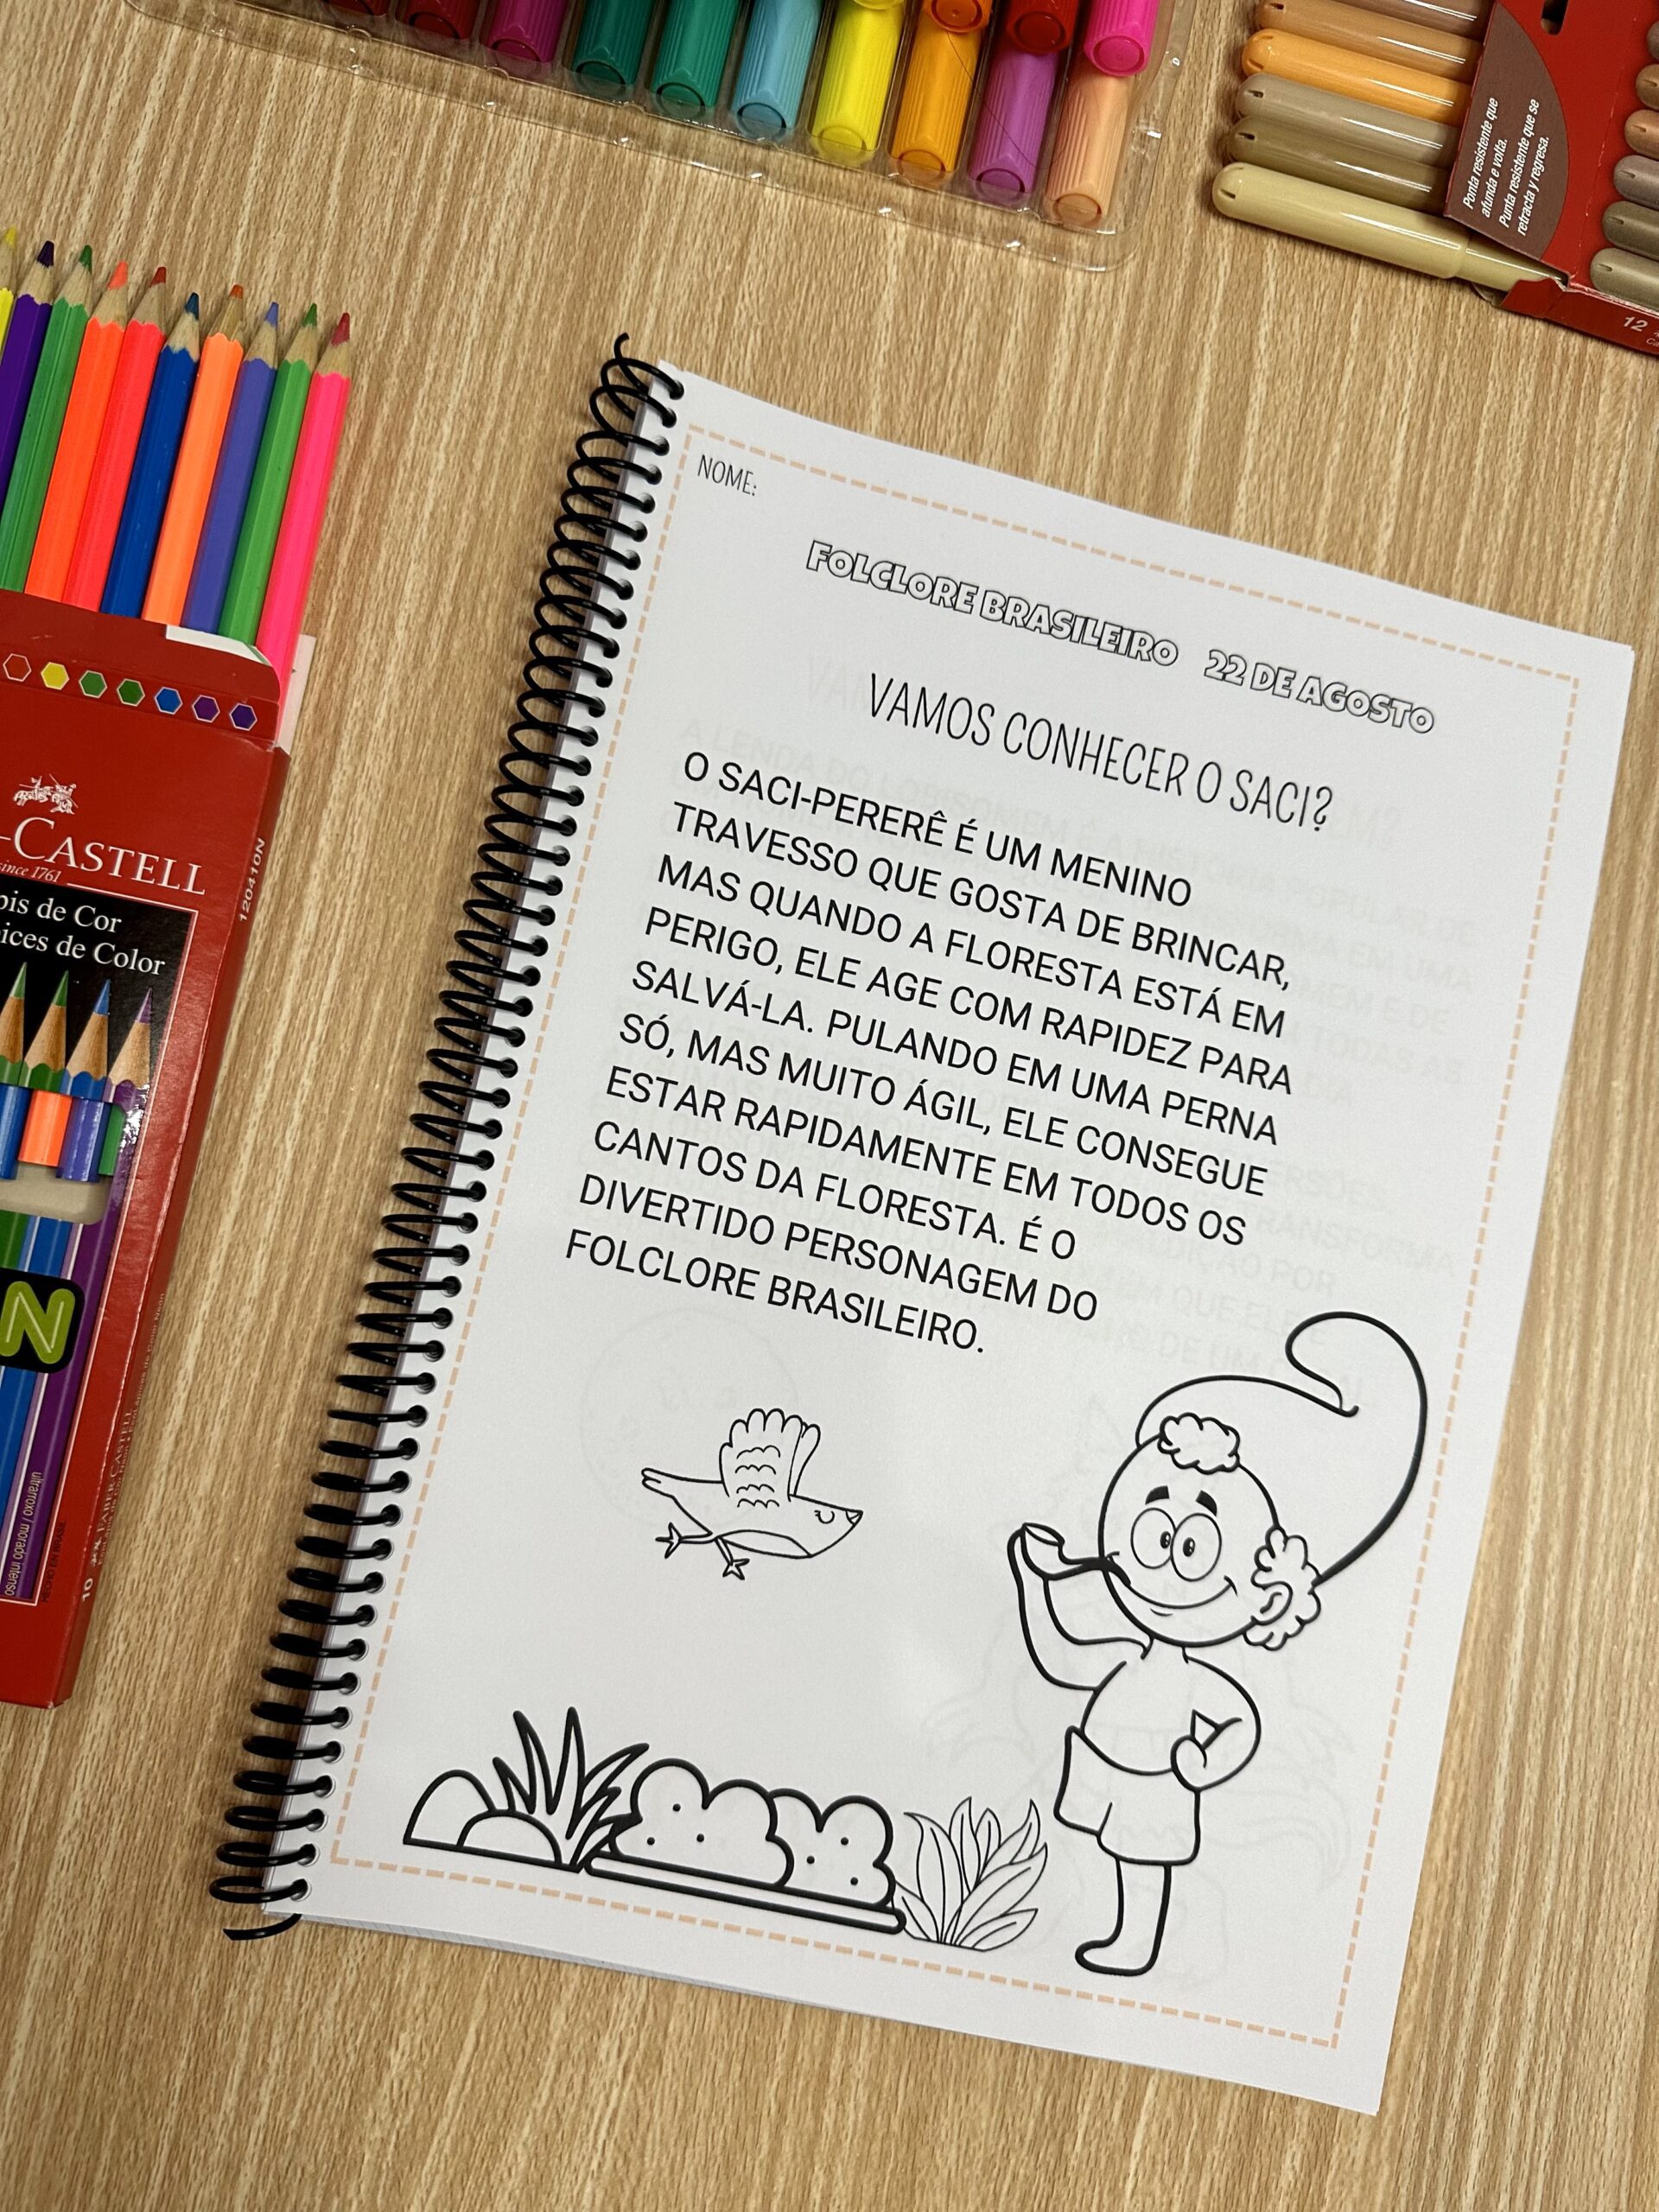 Ponta resistente que
afunda e volta.
Punta resistente que se
retracta y regresa.
12
NOME:
FOLCLORE BRASILEIRO 22 DE AGOSTO
VAMOS CONHECER O SACI?
O SACI-PERERÊ É UM MENINO
TRAVESSO QUE GOSTA DE BRINCAR,
MAS QUANDO A FLORESTA ESTÁ EM
PERIGO, ELE AGE COM RAPIDEZ PARA
SALVÁ-LA. PULANDO EM UMA PERNA
SÓ, MAS MUITO ÁGIL, ELE CONSEGUE
ESTAR RAPIDAMENTE EM TODOS OS
CANTOS DA FLORESTA. É O
DIVERTIDO PERSONAGEM DO
FOLCLORE BRASILEIRO.
-CASTELL
since 1761
120410N
de Cor
de Color
N
ultrarroxo / morado intenso
10
FABER-CASTELL